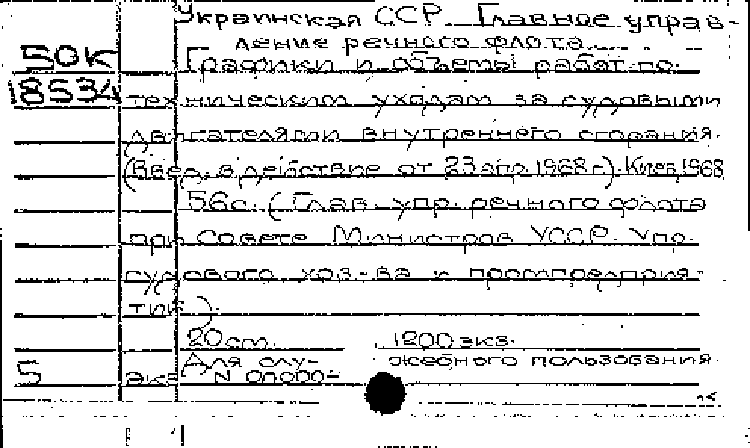 Украинская ССР. Главное управ-
ление речного флота.
50К Графики и объемы работ по
18534 техническим уходам за судовыми
двигателями внутреннего сгорания.
(Введ. в действие от 23 апр. 1968 г.). Киев, 1968
56с. (Глав. упр. речного флота
при Совете Министров УССР. Упр.
судового хоз-ва и промпредприя-
тий)
20 см. 1200 экз.
Для слу- жебного пользования
5 экз N 00000-